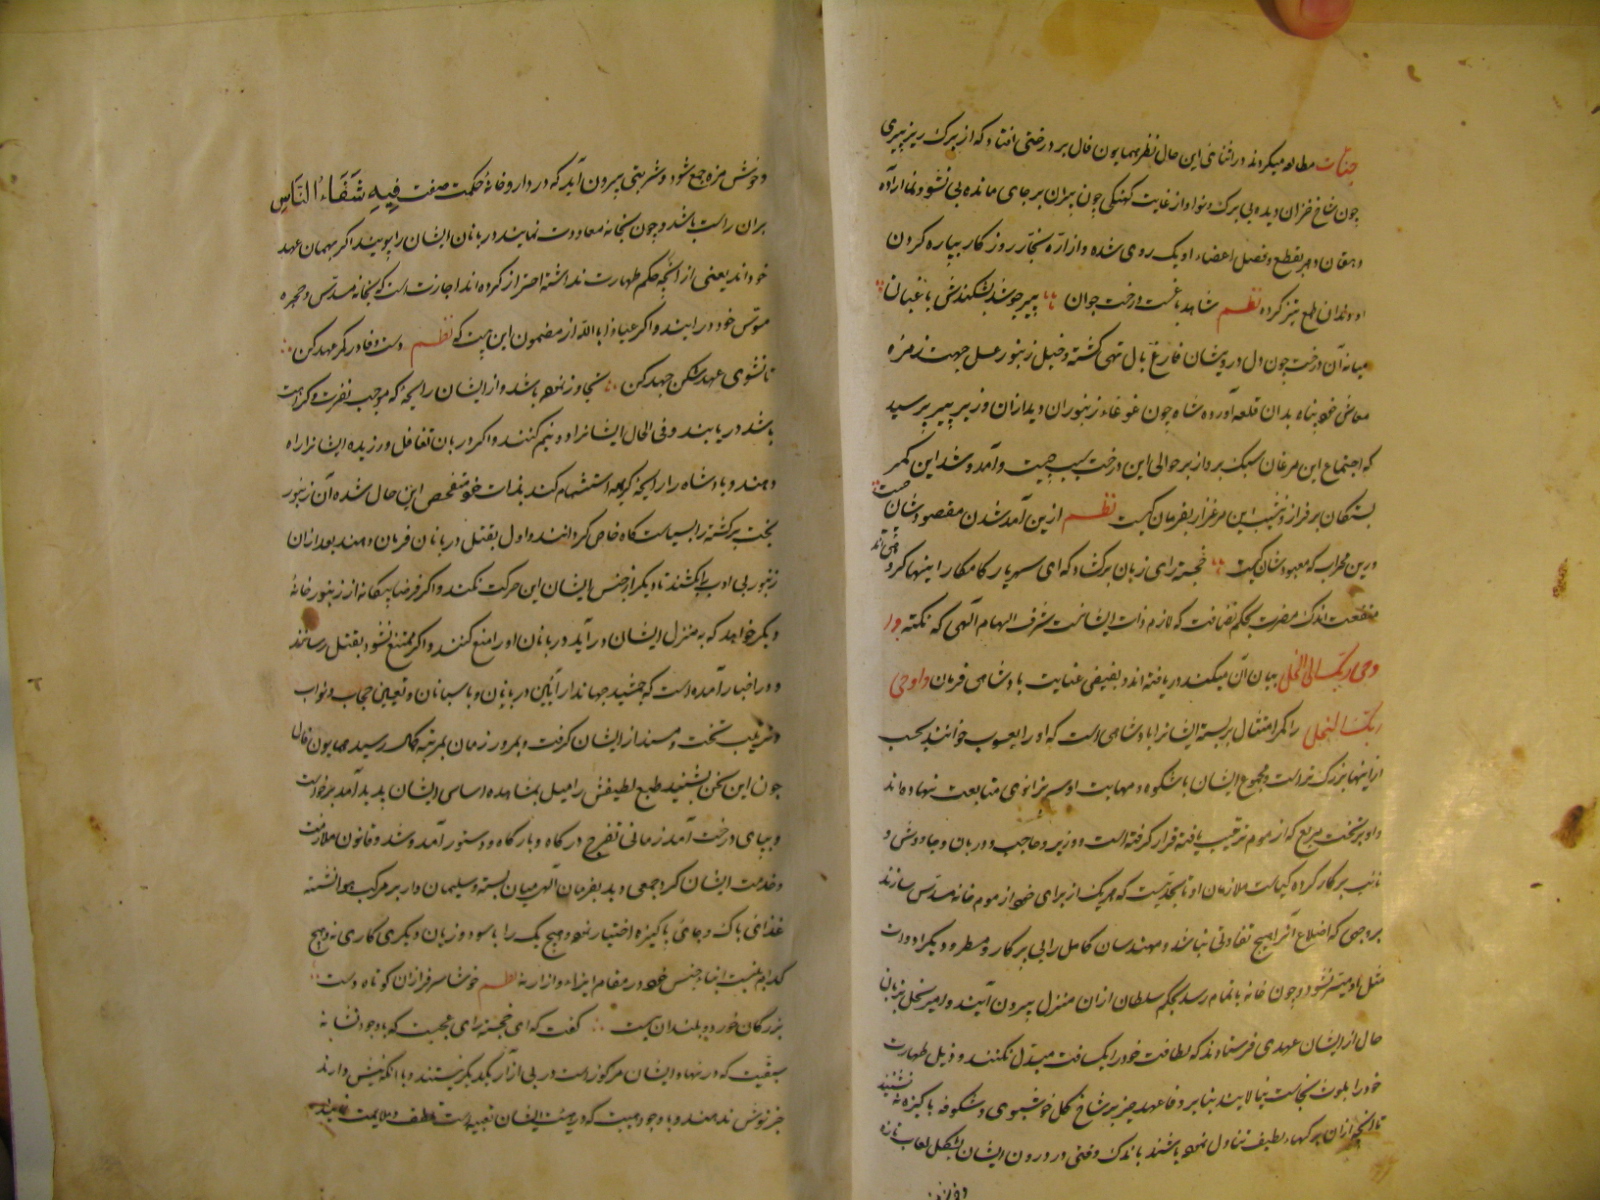 جنات مطالعه میکردند در اثنای این حال نظر همایون فال بر درختی افتاد که از برک ریز پیری
چون شاخ خزان دیده بی برک و نوا و از غایت کهنکی چون پیران بر جای مانده بی نشو و نما اراده
دهقان دهر بقطع و فصل اعضاء او یک روی شده و از اره نجار روزکار بپاره کردن
او دندان طمع تیز کرده نظم شاهد باغست درخت جوان پیر چو شد بشکندش باغبان
میانه آن درخت چون دل درویشان فارغ بال تهی کشته و خیل زنبور عسل جهت زمزه
معاش خود پناه بدان قلعه آورده شاه چون غوغاء زنبوران دید از ان وزیر پیر پرسید
که اجتماع این مرغان سبک پرواز بر حوالی این درخت بسبب چیست و آمد و شد این کمر
بستکان بر فراز و نشیب این مرغزار بفرمان کیست نظم ازین آمد شدن مقصودشان چیست
درین محراب که معبودشان کیست خجسته رای زبان برکشاد که ای شهریار کامکار اینها کروهی اند
منفعت اندک مضرت بحکم نظافت که لازم ذات ایشانست شرف الهام آلهی که نکته و ا
وحی ربک الی النحل بیان آن میکند دریافته اند و بفیض عنایت پادشاهی فرمان و اوحی
ربک الی النحل را کمر امتثال بر بسته ایشانرا پادشاهی است که او را یعسوب خوانند بجسب
از اینها بزرک تر است و مجموع ایشان باشکوه و مهابت او سر بزانوی متابعت نهاده اند
و او بر تخت مربع که از موم ترتیب یافته قرار کرفته است و وزیر و حاجب و دربان و جاووش و
نایب بر کار کرده کیاست ملازمان او تا بحدیست که هر یک از برای خود از موم خانه مسدس سازند
بر وجهی که اضلاع آنرا هیچ تفاوتی نباشد و مهندسان کامل را بی پرکار و مسطر و دیکر ادوات
مثل او میسر نشود و چون خانه باتمام رسد بحکم سلطان از ان منزل بیرون آیند و امیر نحل بزبان
حال از ایشان عهدی فرستاند که لطافت خود را بکثافت مبدل نکنند و ذیل طهارت
خود را بلوث نجاست نیالایند بنا بر وفا عهد جز بر شاخ کل خوشبوی و شکوفه پاکیزه ننشینند
تا آنچه از ان برکهاء لطیف تناول نموده باشند باندک وقتی در درون ایشان بشکل لعاب تازه
و خوش مزه جمع شود و شربتی بیرون آید که در داروخانه حکمت صفت فیه شفاء للناس
بران راست باشد و چون بخانه معاودت نمایند دربانان ایشان را بویند اکر بهمان عهد
خود اند یعنی از آنچه حکم طهارت نداشته احتراز کرده اند اجازتست که بخانه مسدس و حجره
مؤسس خود در آیند و اکر عیاذا بالله از مضمون این بیت که نظم دست وفا در کمر عهد کن
تا نشوی عهد شکن جهد کن تجاوز نموده باشد و از ایشان رایحه که موجب نفرت و کراهت
باشد دریابند و فی الحال ایشانرا دو نیم کنند و اکر دربان تغافل ورزیده ایشانرا راه
دهند و پادشاه را رایحه کریهه استشمام کند بذات خود متفحص این حال شده آن زنبور
بخت برکشته را بسیاست کاه خاص کردانند و اول بقتل دربانان فرمان دهند بعد از ان
زنبور بی ادب را بکشند تا دیکر از جنس ایشان این حرکت نکنند و اکر فرضا بیکانه از زنبور خانه
دیکر خواهد که به منزل ایشان در آید دربانان او را منع کنند و اکر ممتنع نشود بقتل رسانند
و در اخبار آمده است که جمشید جهاندار آئین دربانان و پاسبانان و تعیین حجاب و نواب
و ترتیب تخت و مسند از ایشان کرفت و بمرور زمان بمرتبه کمال رسید همایون فال
چون این سخن بشنید طبع لطیفش را میل بمشاهده اساس ایشان پدید آمد برخواست
و بپای درخت آمد زمانی تفرج درکاه و بارکاه و دستور آمد و شد و قانون ملازمت
و خدمت ایشان کرد جمعی دید بفرمان آلهی میان بسته و سلیمان وار بر مرکب هوا نشسته
غذای پاک و جای پاکیزه اختیار نموده و هیچ یک را با سود و زیان دیکری کاری نه و هیچ
کدام نسبت ابناء جنس خود در مقام ایذاء و آزار نه نظم خوشا سرفرازان کوتاه دست
بزرکان خورد و بلندان پست کفت که ای خجسته رای عجبست که با وجود نشانه
سبعیت که در نهاد ایشان مرکوز است در پی آزار یکدیکر نیستند و با انکه نیش دارند
جز نوش ندهند و با وجود هیبت که در هیئت ایشان تعبیه است بلطف و ملایمت